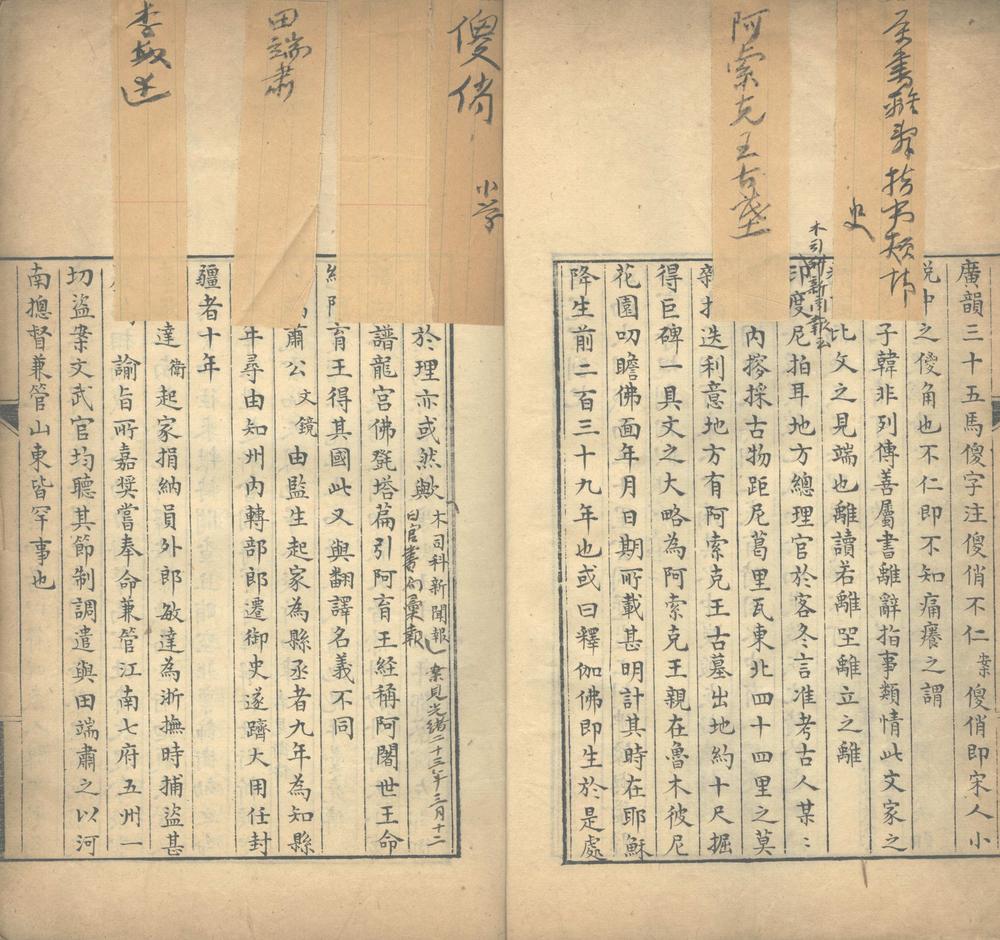 屬書離辭指事類情
史
阿索克王古墓
傻俏
小学
田端肅
李敏达
廣韻三十五馬傻字注傻俏不仁案傻俏即宋人小
說中之傻角也不仁即不知痛癢之謂
子韓非列傳善屬書離辭指事類情此文家之
比文之見端也離讀若離坐離立之離
木司科新聞報云
印度尼拍耳地方總理官於客冬言准考古人某〻
內搜採古物距尼葛里瓦東北四十四里之莫
迭利意地方有阿索克王古墓出地約十尺掘
得巨碑一具文之大略為阿索克王親在魯木彼尼
花園叨瞻佛面年月日期所載甚明計其時在耶穌
降生前二百三十九年也或曰釋伽佛即生於是處
於理亦或然歟
木司科新聞報
案見光緒二十三年三月十二
日官書局彙報
譜龍宮佛髠塔篇引阿育王経稱阿闍世王命
育王得其國此又與翻譯名義不同
肅公文鏡由監生起家為縣丞者九年為知縣
年尋由知州內轉部郎遷御史遂躋大用任封
疆者十年
達衛起家捐納員外郎敏達為浙撫時捕盜甚
諭旨所嘉奨嘗奉命兼管江南七府五州一
切盜案文武官均聽其節制調遣與田端肅之以河
南摠督兼管山東皆罕事也